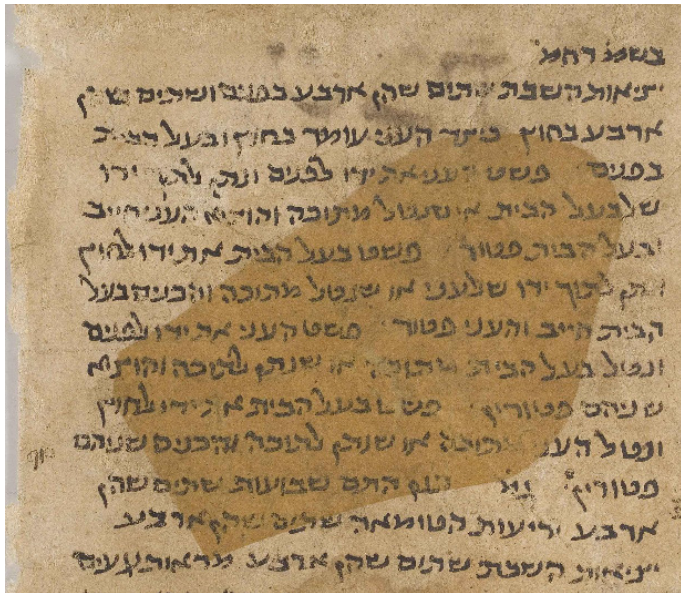 בשמ׳ רחמ׳
יציאות השבת שתים שהן ארבע בפנים ושתים שהן
ארבע בחוץ כיצד העני עומד בחוץ ובעל הבית
בפנים פשט העני את ידו לפנים ונתן לתוך ידו
שלבעל הבית או שנטל מתוכה והוציא העני חייב
ובעל הבית פטור פשט בעל הבית את ידו לחוץ
ונתן לתוך ידו שלעני או שנטל מתוכה והכניס בעל
הבית חייב והעני פטור פשט העני את ידו לפנים
ונטל בעל הבית מתוכה או שנתן לתוכה והוציא
שניהם פטורין פשט בעל הבית את ידו לחוץ
ונטל העני מתוכה או שנתן לתוכה והכניס שניהם
פטורין גמ׳ תנן התם שבועות שתים שהן
ארבע ידיעות הטומאה שתים שהן ארבע
יציאות השבת שתים שהן ארבע מראות נגעים